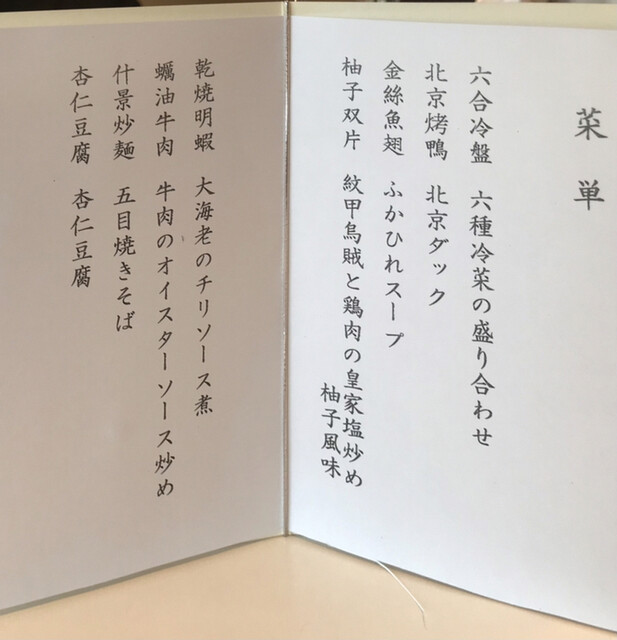 菜単
六合冷盤 六種冷菜の盛り合わせ
北京烤鴨 北京ダック
金絲魚翅 ふかひれスープ
柚子双片 紋甲烏賊と鶏肉の皇家塩炒め
柚子風味
乾焼明蝦 大海老のチリソース煮
蠣油牛肉 牛肉のオイスターソース炒め
什景炒麺 五目焼きそば
杏仁豆腐 杏仁豆腐